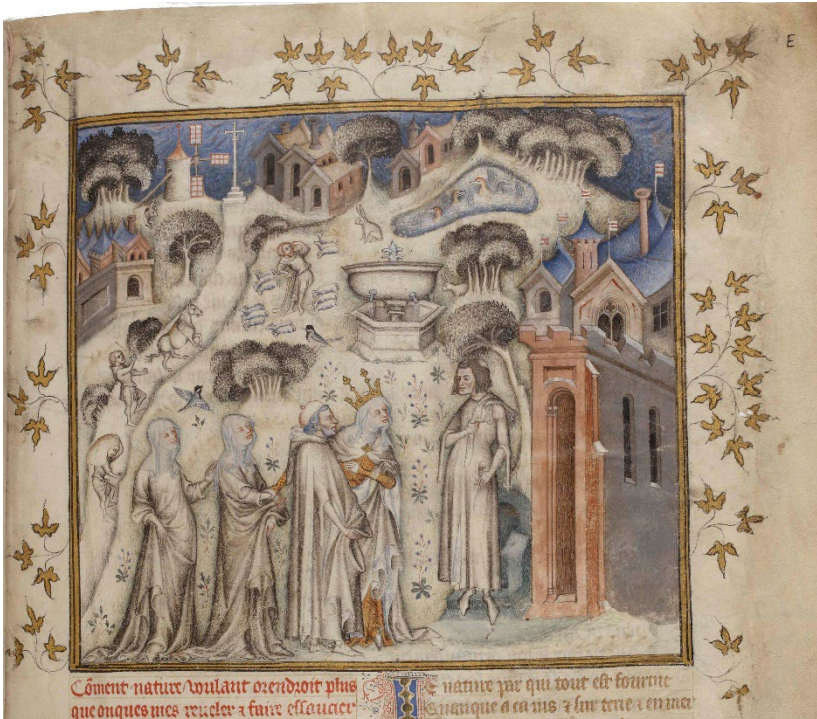 E
Cõment nature voulant orendroit plus
que onques mes reueler ⁊ faire essaucier
E nature par qui tout est fourme
Quanque a ca ius ⁊ sur terre ⁊ en mer